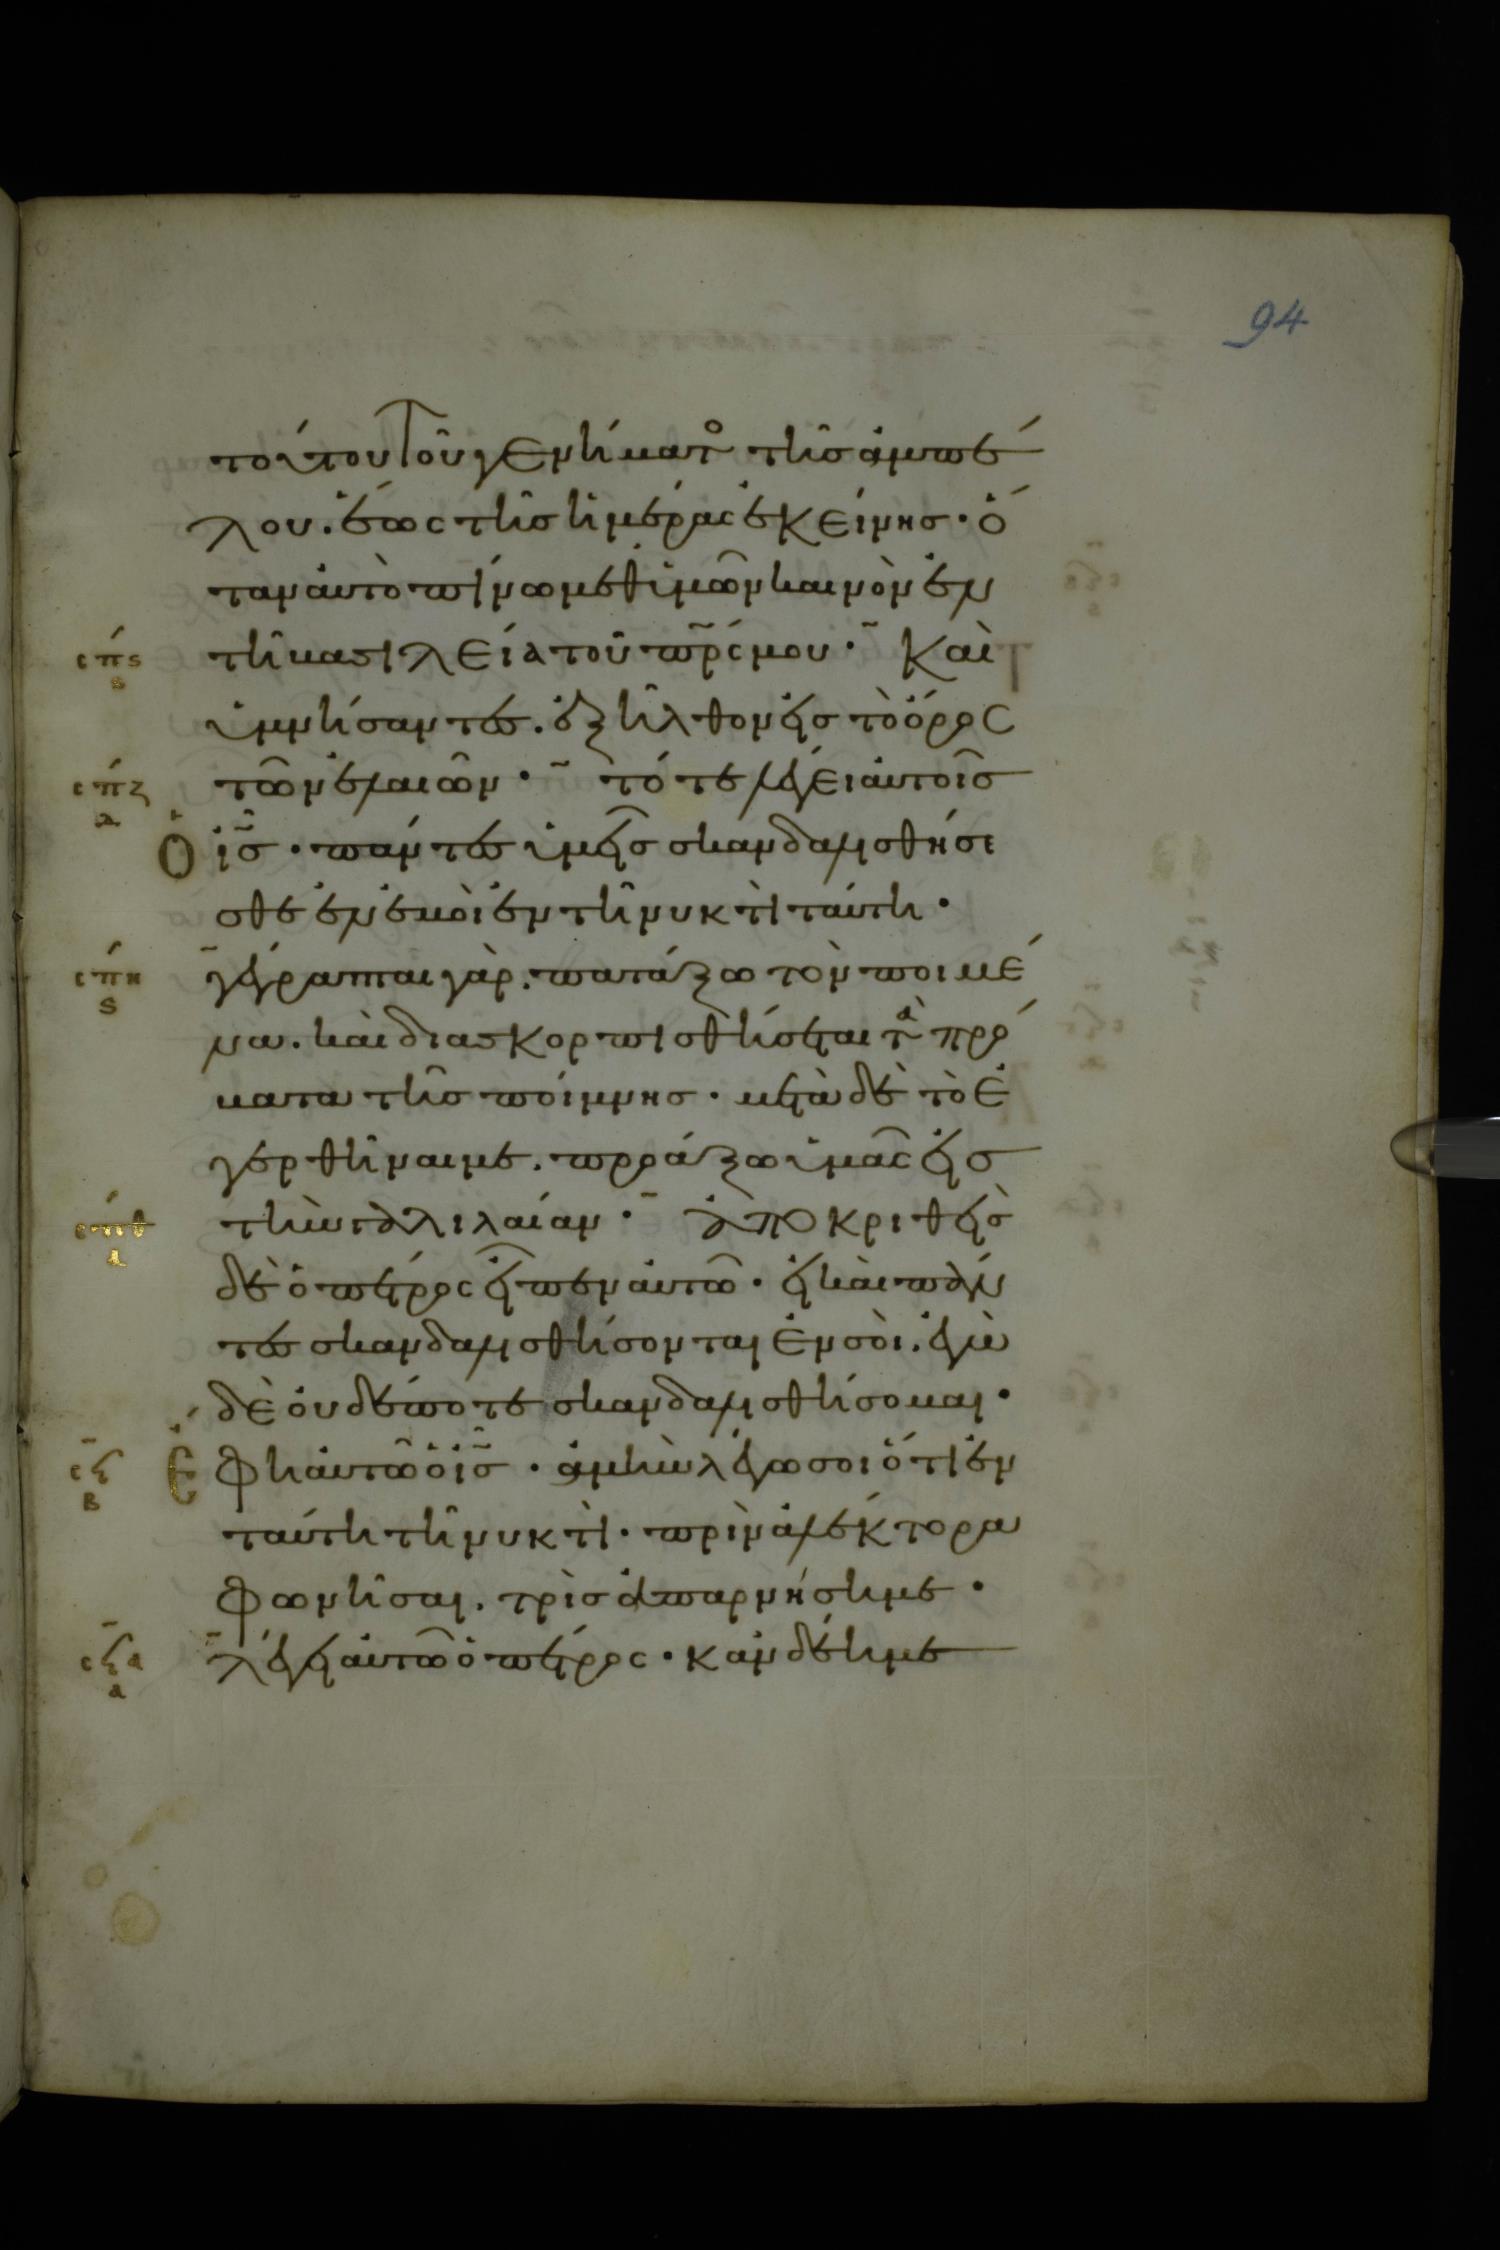 94
τούτου τοῦ γενήματο τῆς ἀμπέ
λου. ἕως τῆς ἡμέρας ἐκείνης· ὅ
ταν αὐτὸ πίνω μεθ ὑμῶν καινὸν ἐν
σπϛ τῆ βασιλεία τοῦ πρς μου· Καὶ
ὑμνήσαντες. ἐξῆλθον εἰς τὸ ὄρος
σπζ τῶν ἐλαιῶν· τότε λέγει αὐτοῖς
Ὁ ις· πάντες ὑμεῖς σκανδαλισθήσε
σθε ἐν ἐμοὶ ἐν τῆ νυκτὶ ταύτη·
σπη ϛ γέγραπται γὰρ. πατάξω τὸν ποιμέ
να. καὶ διασκορπισθήσεται τὰ πρό
βατα τῆς ποίμνης· μετὰ δὲ τὸ ἐ
γερθῆναι με. προάξω ὑμᾶς εἰς
σπθ τὴν γαλιλαίαν· ἀποκριθεὶς
δὲ ὁ πέτρος εἶπεν αὐτῶ· εἰ καὶ πάν
τες σκανδαλισθήσονται ἐν σοὶ. ἐγὼ
δὲ οὐδέποτε σκανδαλισθήσομαι·
σϟ β Ἔφη αὐτῶ ὁ ις· ἀμὴν λέγω σοι ὅτι ἐν
ταύτη τῆ νυκτὶ· πρὶν ἀλέκτορα
φωνῆσαι. τρὶς ἀπαρνήση με·
σϟα α λέγει αὐτῶ ὁ πέτρος· κἂν δέη με